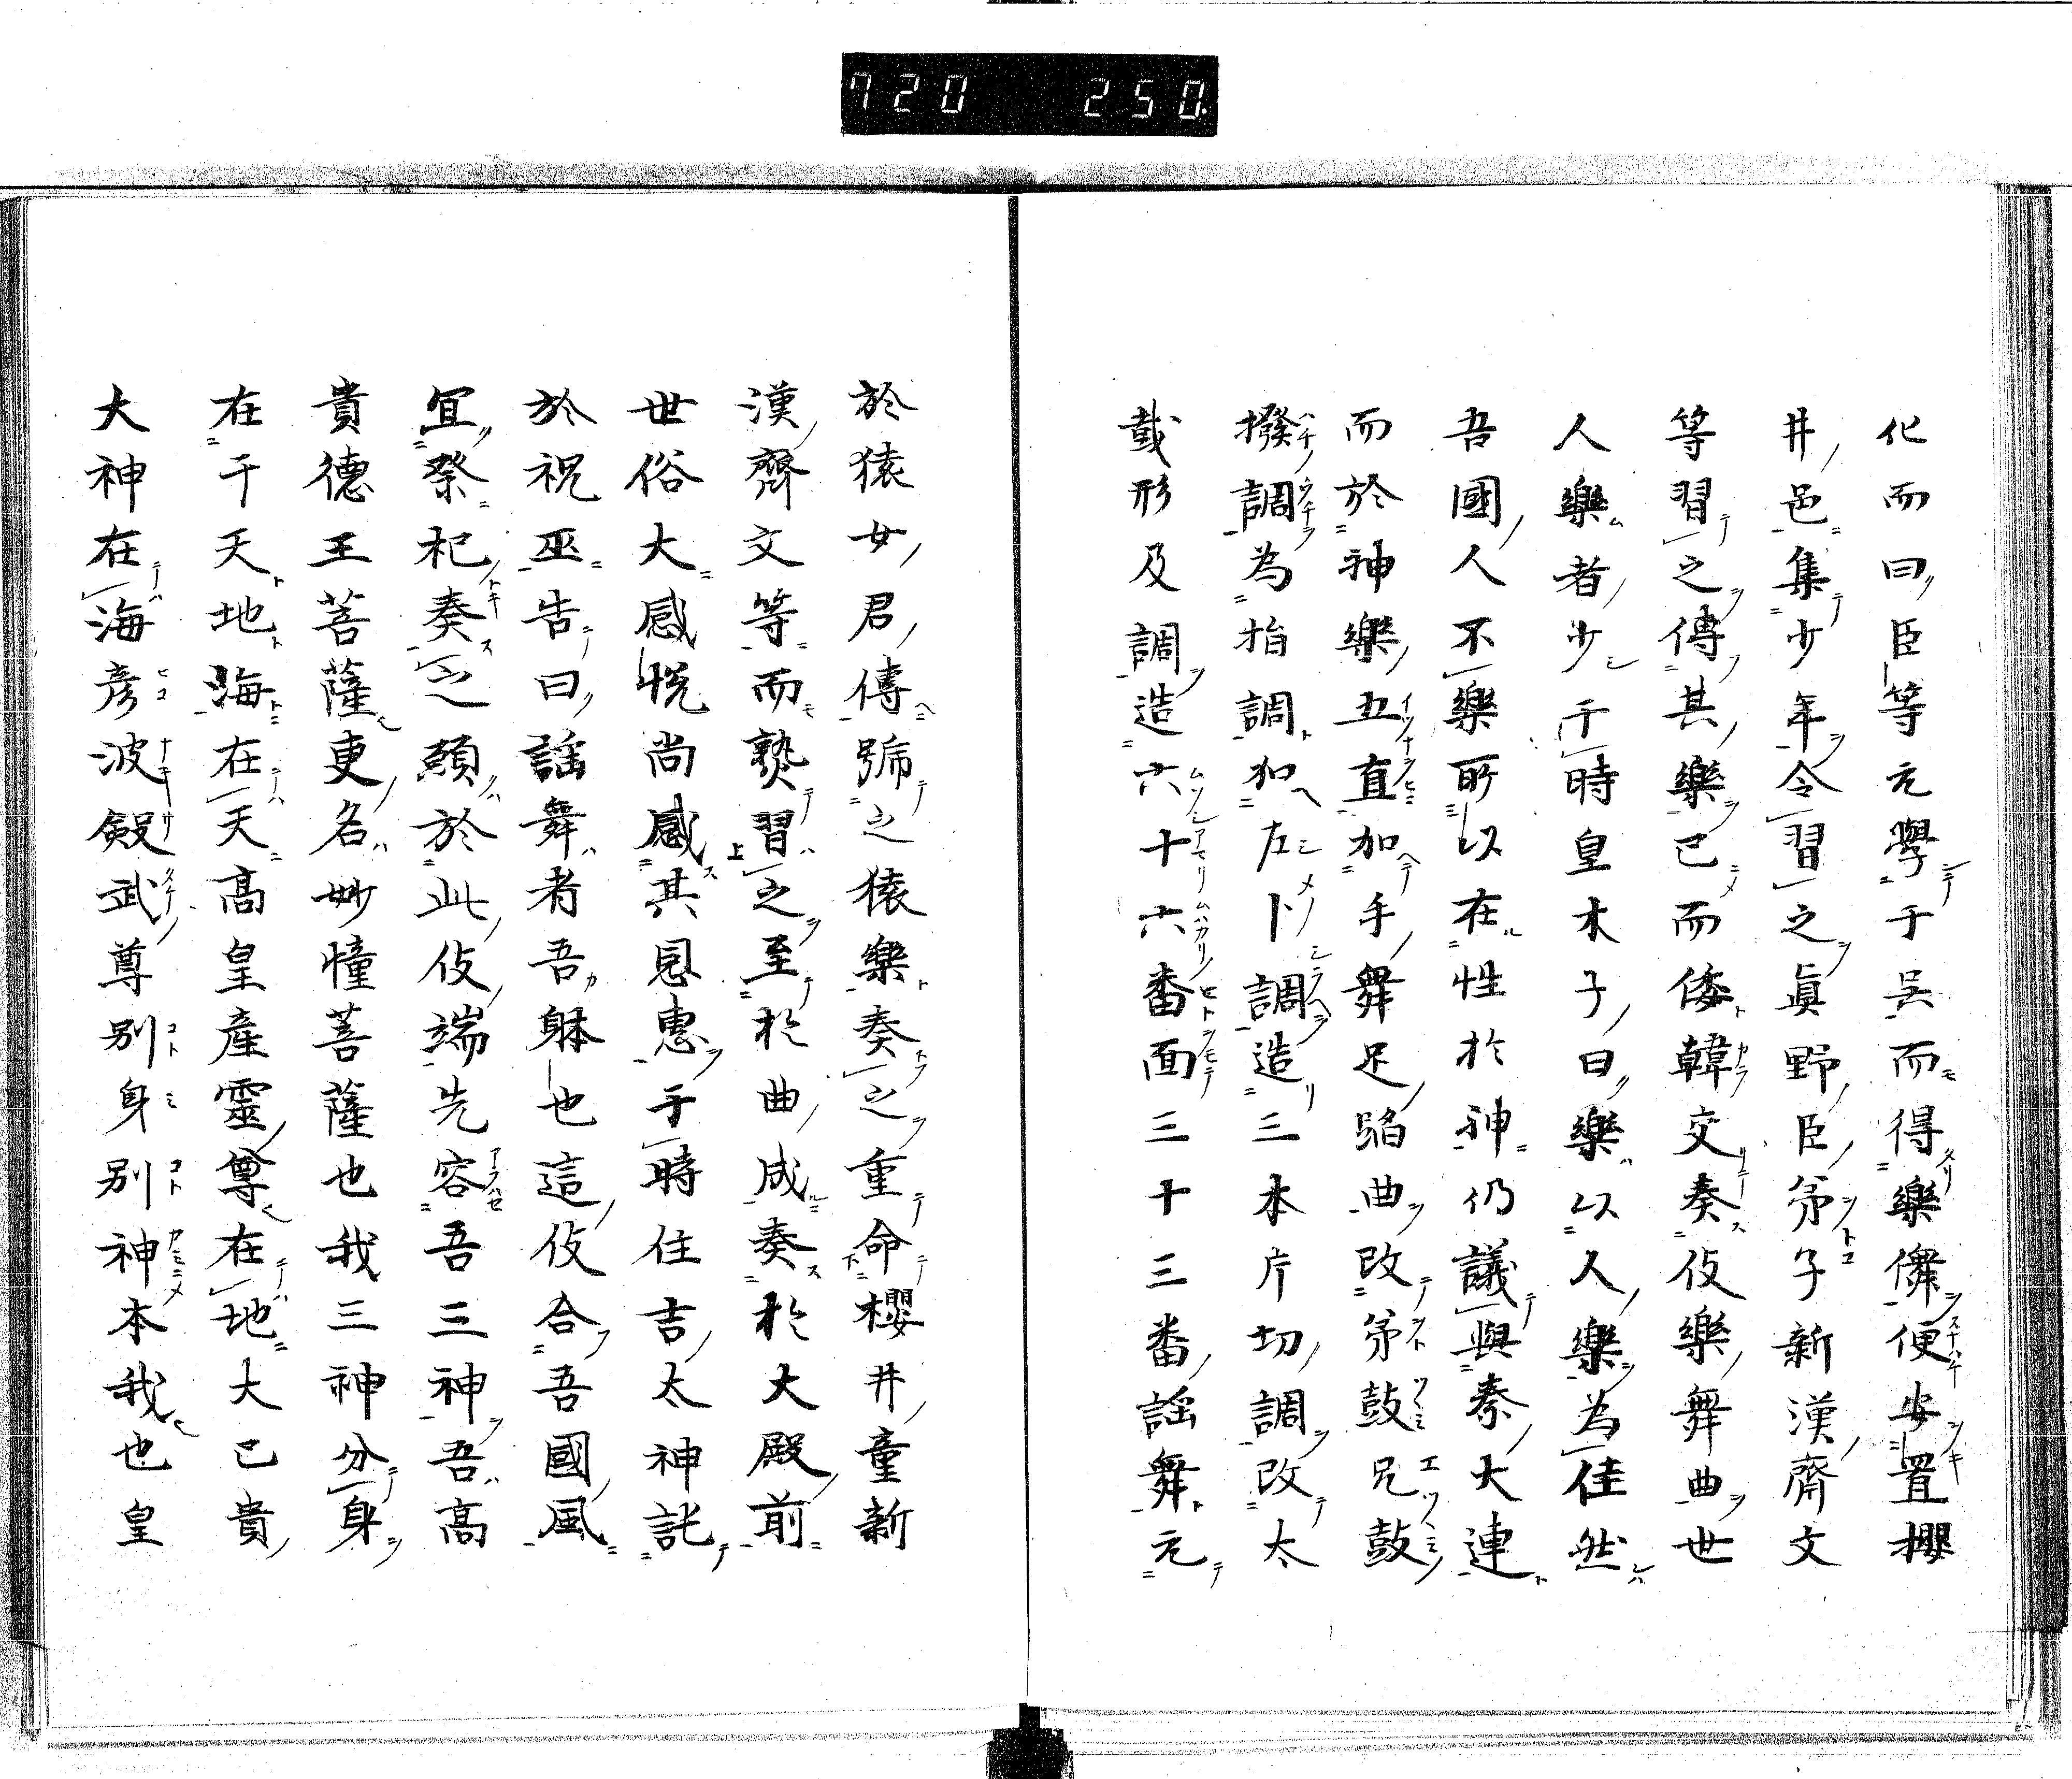 720 250.
化而曰臣等元學于呉而得樂儛便安置櫻
井邑集少年令習之眞野臣弟子新漢齊文
等習之傳其樂已而倭韓交奏伎樂舞曲世
人樂者少于時皇太子曰樂以人樂為佳然
吾國人不樂所以在性於神仍議與秦大連
而於神樂五直加手舞足蹈曲改弟鼓兄鼓
撥調為指調加左卜調造三本片切調改太
戯形及調造六十六番面三十三番謡舞元
於猿女君傳號之猿樂奏之重命櫻井童新
漢齊文等而熟習之至於曲成奏於大殿前
世俗大感悦尚感其恩惠于時住吉太神託
於祝巫告曰謡舞者吾躰也這伎合吾國風
宜祭祀奏之頭於此伎端先容吾三神吾高
貴德王菩薩更名妙幢菩薩也我三神分身
在于天地海在天高皇產靈尊在地大己貴
大神在海彦波瀲武尊別身別神本我也皇